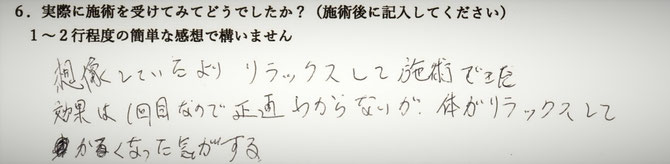 6．実際に施術を受けてみてどうでしたか？（施術後に記入してください）
1～2行程度の簡単な感想で構いません
想像していたより リラックスして施術できた
効果は1回目なので正直わからないが、体がリラックスして
かるくなった気がする